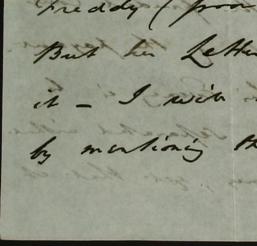 Freddy (poor
But her Letter
it – I will
by mentioning th